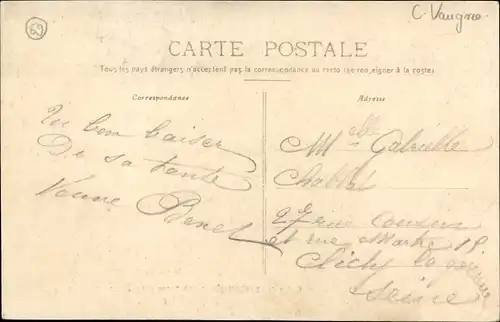 69
C. Vaugne
CARTE POSTALE
Tous les pays étrangers n'acceptent pas la correspondance au recto (se renseigner à la poste)
Correspondance
Adresse
Un bon baiser
De sa tante
Benet
Melle Gabrielle
27 rue Cousin
et rue Martre 15
Clichy la
Seine